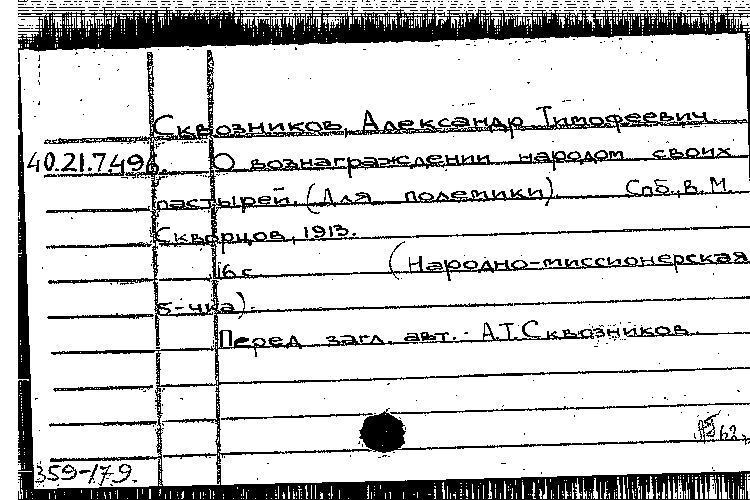 Сквозников, Александр Тимофеевич
40.21.7.496. О вознаграждении народом своих
пастырей. (Для полемики) Спб., В. М.
Скворцов, 1913.
16 с (Народно-миссионерская
5-чка).
Перед загл. авт.: А.Т.Сквозников.
62.
359-179.